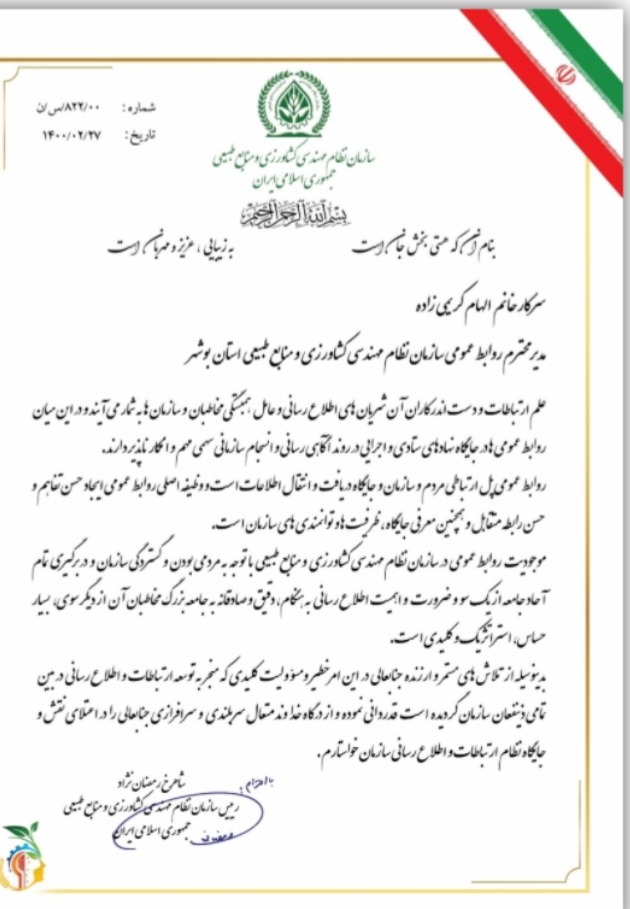 شماره : ۸۲۲/۰۰/س/ن
تاریخ: ۱۴۰۰/۰۲/۲۷
سازمان نظام مهندسی کشاورزی و منابع طبیعی
جمهوری اسلامی ایران
بسم الله الرحمن الرحیم
بنام آنکه هستی بخش جان است به زیبایی ، عزیز و مهربان است
سرکار خانم الهام کریمی زاده
مدیر محترم روابط عمومی سازمان نظام مهندسی کشاورزی و منابع طبیعی استان بوشهر
علم ارتباطات و دست اندرکاران آن شریان های اطلاع رسانی و عامل همبستگی مخاطبان و سازمان ها به شمار می آیند و در این میان
روابط عمومی ها در جایگاه نهادهای ستادی و اجرایی در روند آگاهی رسانی و انسجام سازمانی سهمی مهم و انکار ناپذیر دارند.
روابط عمومی پل ارتباطی مردم و سازمان و جایگاه دریافت و انتقال اطلاعات است و وظیفه اصلی روابط عمومی ایجاد حسن تفاهم و
حسن رابطه متقابل و همچنین معرفی جایگاه ، ظرفیت ها و توانمندی های سازمان است.
موجودیت روابط عمومی در سازمان نظام مهندسی کشاورزی و منابع طبیعی با توجه به مردمی بودن و گستردگی سازمان و دربرگیری تمام
آحاد جامعه از یک سو و ضرورت و اهمیت اطلاع رسانی به هنگام، دقیق و صادقانه به جامعه بزرگ مخاطبان آن از دیگر سوی، بسیار
حساس، استراتژیک و کلیدی است.
بدینوسیله از تلاش های مستمر و ارزنده جنابعالی در این امر خطیر و مسؤولیت کلیدی که منجر به توسعه ارتباطات و اطلاع رسانی در بین
تمامی ذینفعان سازمان گردیده است قدردانی نموده و از درگاه خداوند متعال سربلندی و سرافرازی جنابعالی را در اعتلای نقش و
جایگاه نظام ارتباطات و اطلاع رسانی سازمان خواستارم .
با احترام :
شاهرخ رمضان نژاد
رییس سازمان نظام مهندسی کشاورزی و منابع طبیعی
جمهوری اسلامی ایران